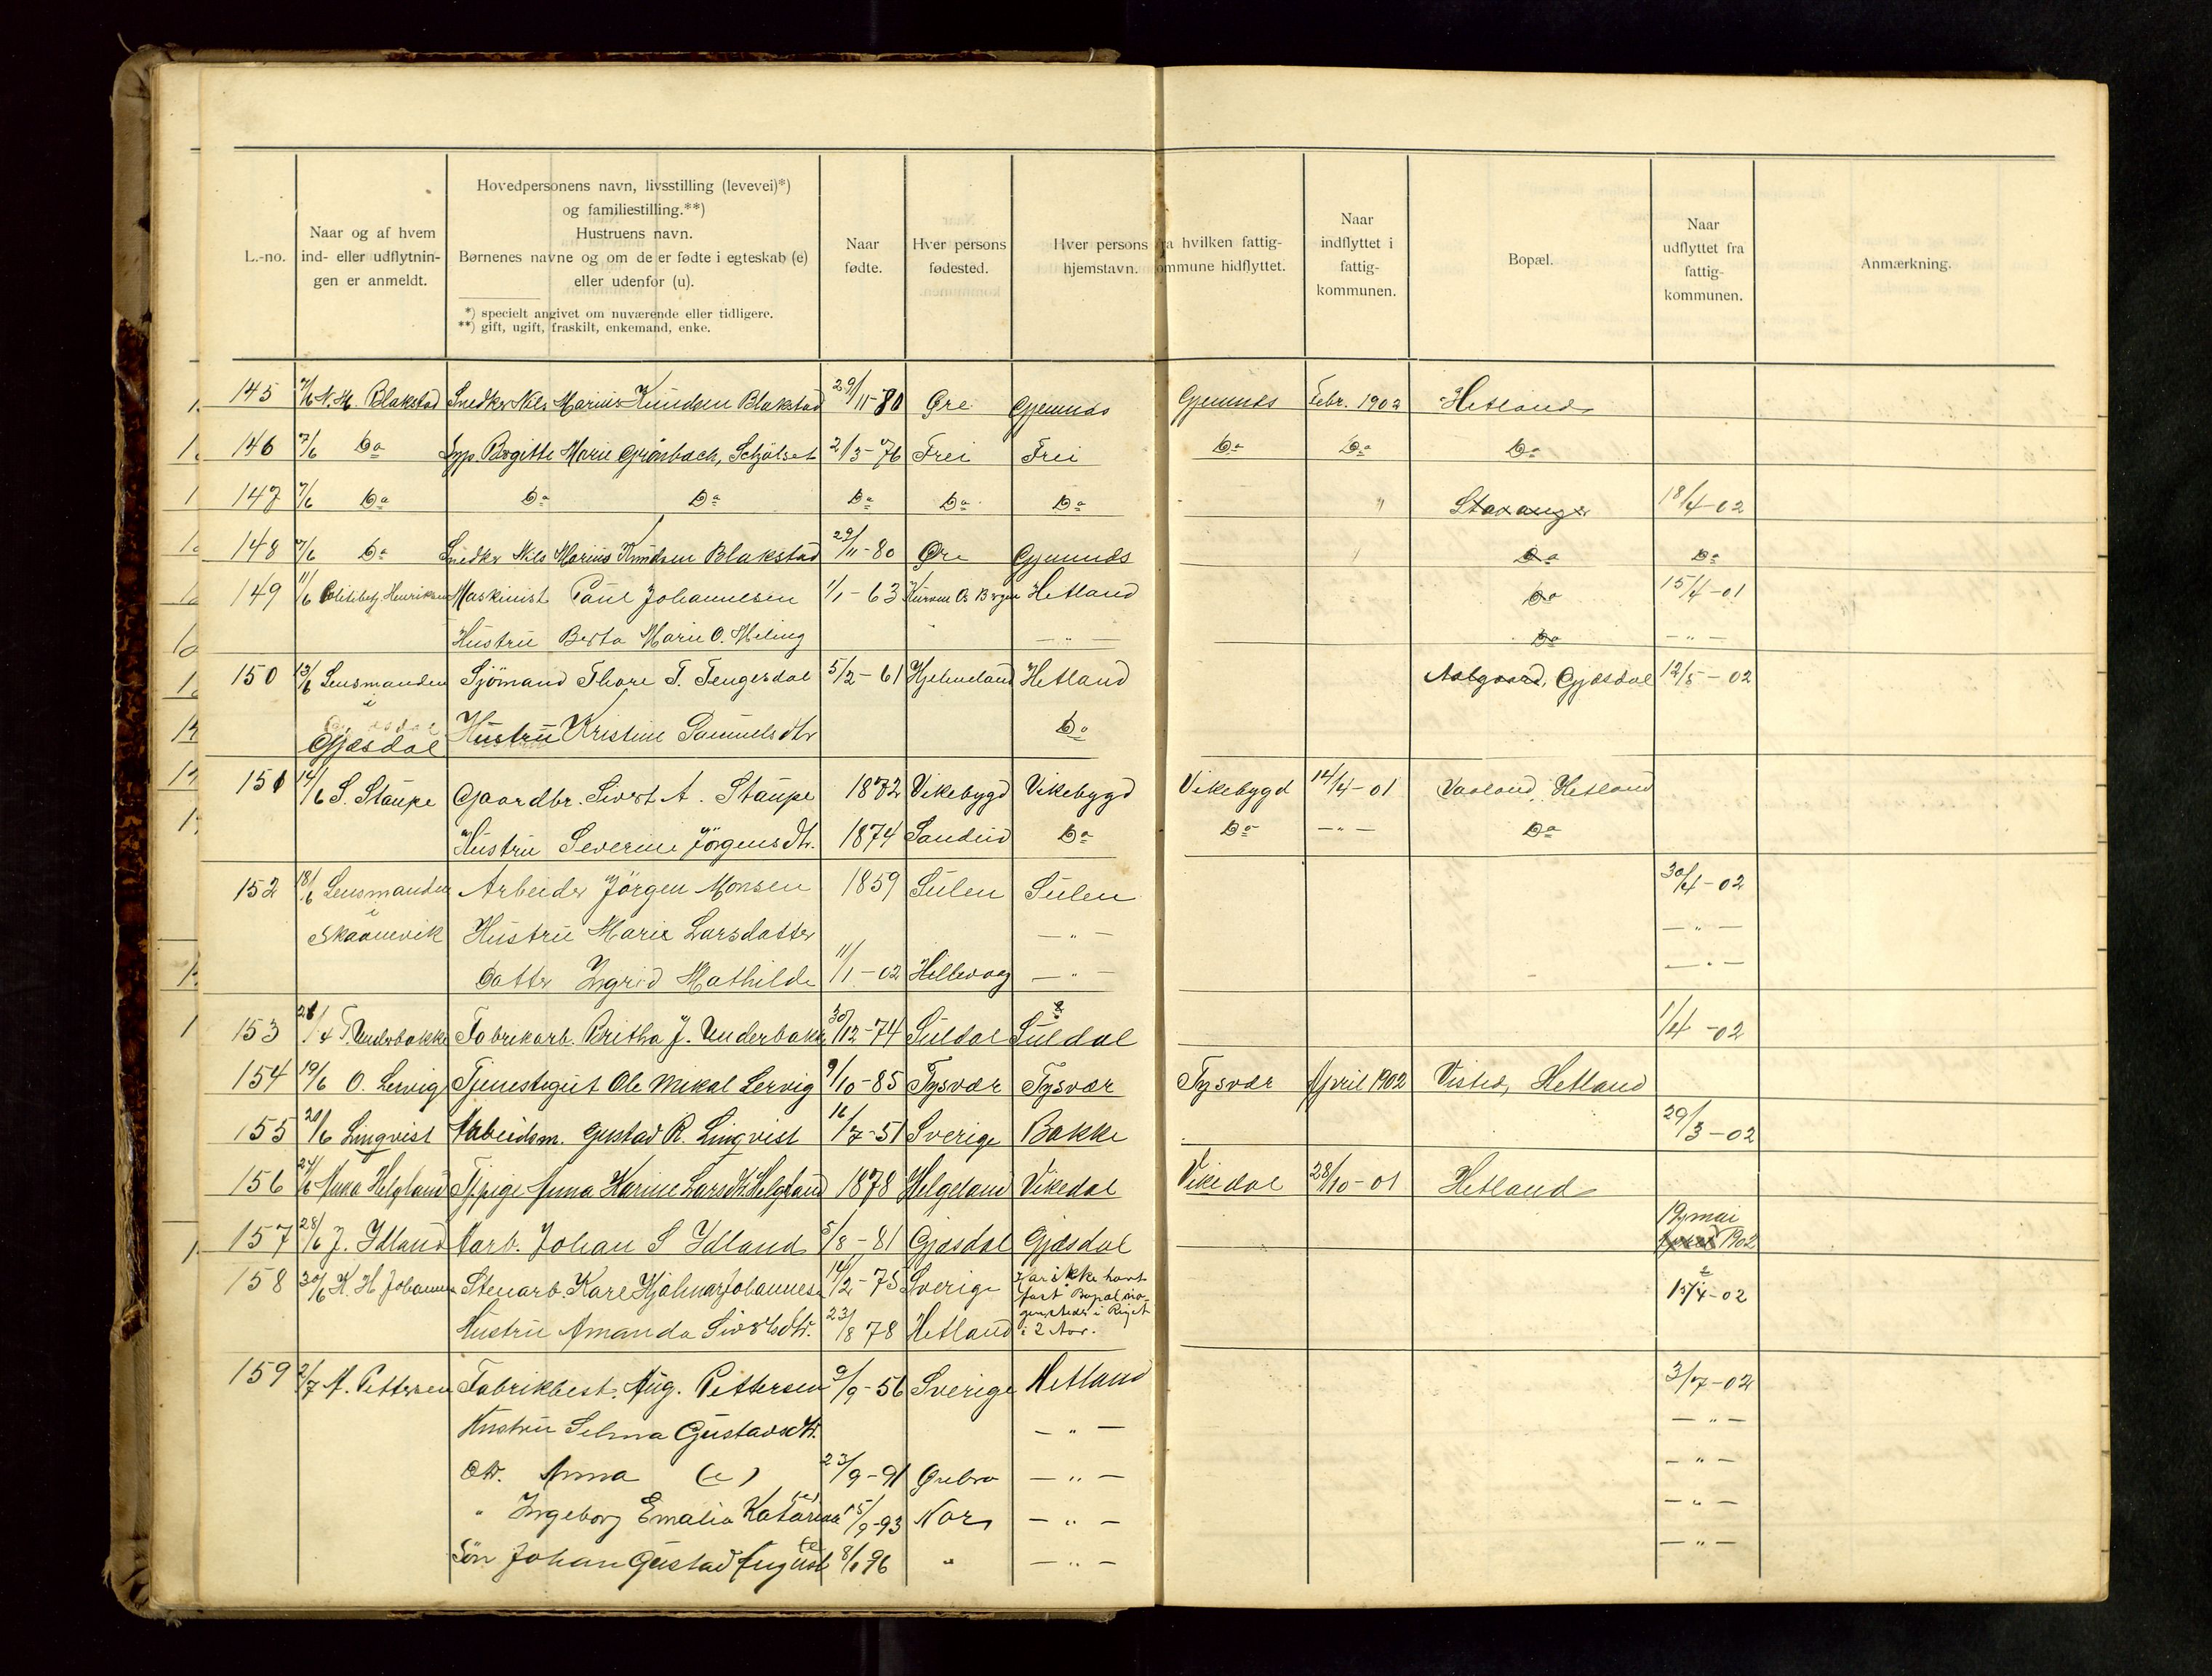 L.-no.
Naar og af hvem
ind- eller udflytnin-
gen er anmeldt.
Hovedpersonens navn, livsstilling (levevei)*)
og familiestilling.**)
Hustruens navn.
Børnenes navne og om de er fødte i egteskab (e)
eller udenfor (u).
*) specielt angivet om nuværende eller tidligere.
**) gift, ugift, fraskilt, enkemand, enke.
Naar
fødte.
Hver persons
fødested.
Hver persons
hjemstavn.
ra hvilken fattig-
ommune hidflyttet.
Naar
indflyttet i
fattig-
kommunen.
Bopæl.
Naar
udflyttet fra
fattig-
kommunen.
Anmærkning.
145 7/6 N. M. Blakstad Snedker Nils Marius Knudsen Blakstad 29/11-80 Øre Gjemnds Gjemnds Febr. 1902 Hetland
146 7/6 Do Birgitte Marie Grønbæck, Schjølset 2/3-76 Frei Frei Do Do Do
147 7/6 Do Do Do Do Do Do " Stavanger 18/4-02
148 7/6 Do Snedker Nils Marius Knudsen Blakstad 29/11-80 Øre Gjemnds " Do Do
149 11/6 Politibetj. Henriksen Maskinist Paul Johannesen 1/1-63 Os Bergen Hetland Do 15/4-01
Hustru Berta Marie O. Meling — " — Do — " —
150 13/6 Lensmanden Sjömand Thore T. Tengesdal 5/2-61 Hjelmeland Hetland Aalgaard, Gjæsdal 12/5-02
i
Gjæsdal Hustru Kristine Samuelsdtr Do
151 14/6 S. Staupe Gaardbr. Sivert A. Staupe 1872 Vikebygd Vikebygd Vikebygd 14/4-01 Vaaland, Hetland
Hustru Severine Jörgensdtr. 1874 Sandeid Do Do — " — Do
152 18/6 Lensmanden Arbeider Jörgen Monsen 1859 Sulen Sulen 30/4-02
i
Skaanevik Hustru Marie Larsdatter — " — — " —
Datter Ingrid Mathilde 11/1-02 Hillevaag — " — — " —
153 T. Underbakke Fabrikarb. Britha J. Underbakke 30/12-74 Suldal Suldal 1/4-02
154 19/6 O. Lervig Tjenestegut Ole Mikal Lervig 9/10-85 Tysvær Tysvær Tysvær April 1902 Visted, Hetland
155 20/6 Linqvist Arbeidsm. Gustav R. Linqvist 16/7-51 Sverige Bakke 29/3-02
156 24/6 Anna Helgland Tj.pige Anna Karine Larsdtr. Helgeland 1878 Helgeland Vikedal Vikedal 28/10-01 Hetland
157 28/6 J. Idland Aarb. Johan S Idland 5/8-81 Gjæsdal Gjæsdal 19 mai 1902
158 30/6 K. H Johannes Stenarb. Karl Hjalmar Johannesen 14/2-75 Sverige Har ikke havt 15/4-02
fast Bopæl no-
gensteder i Riget
Hustru Amanda Sivertsdtr. 23/8 78 Hetland i 2 Aar.
159 2/7 A. Pettersen Fabrikbest. Aug. Pettersen 9/9-56 Sverige Hetland 3/7-02
Hustru Selma Gustavsdtr. — " — — " —
Dtr. Anna (e) 23/9-91 Ørebro — " — — " —
" Ingeborg Emalia Katarina (e) 15/9-93 Nor — " — — " —
Sön Johan Gustav August (e) 8/1 96 " — " — — " —